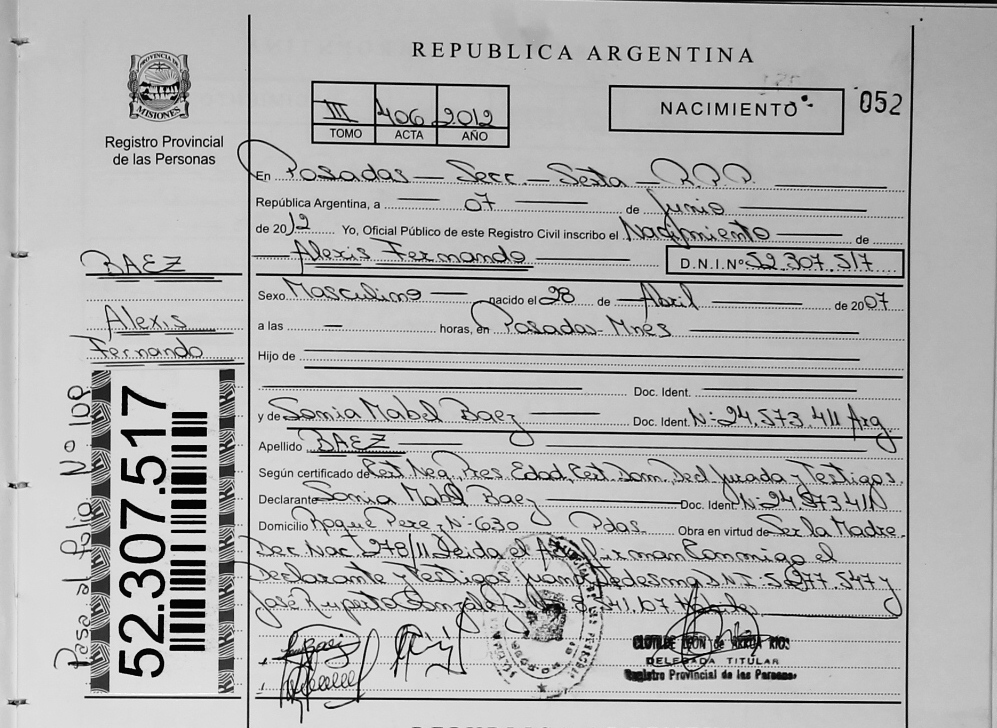 REPUBLICA ARGENTINA
PROVINCIA DE
MISIONES
Registro Provincial
de las Personas
III 406 2012
TOMO ACTA AÑO
NACIMIENTO
052
En Posadas — Secc. — Sexta — R.P.P.
República Argentina, a — 07 — de Junio
de 2012 Yo, Oficial Público de este Registro Civil inscribo el Nacimiento — de
— Alexis Fernando D.N.I.Nº 52.307.517
Sexo Masculino — nacido el 28 de — Abril — de 2007
a las — horas, en Posadas-Mnes
Hijo de
Doc. Ident.
y de Sonia Mabel Baez — Doc. Ident. Nº 24.573.411 Arg
Apellido BAEZ
Según certificado de Cert. Neg, Pres. Edad, Cert. Dom. Decl jurada y Testigos.
Declarante Sonia Mabel Baez — Doc. Ident. Nº 24.573.411
Domicilio Roque Perez Nº 630 Pdas. Obra en virtud de Ser la Madre.
Dec. Nac. 278/11 Leida el Firman Conmigo el
Declarante y Testigos Juan Ledesma D.N.I. y
José Ruperto Gonzalez
BAEZ
Alexis
Fernando
Pasa al folio Nº 108
52.307.517
CLOTILDE LEON de RIOS
DELEGADA TITULAR
Registro Provincial de las Personas